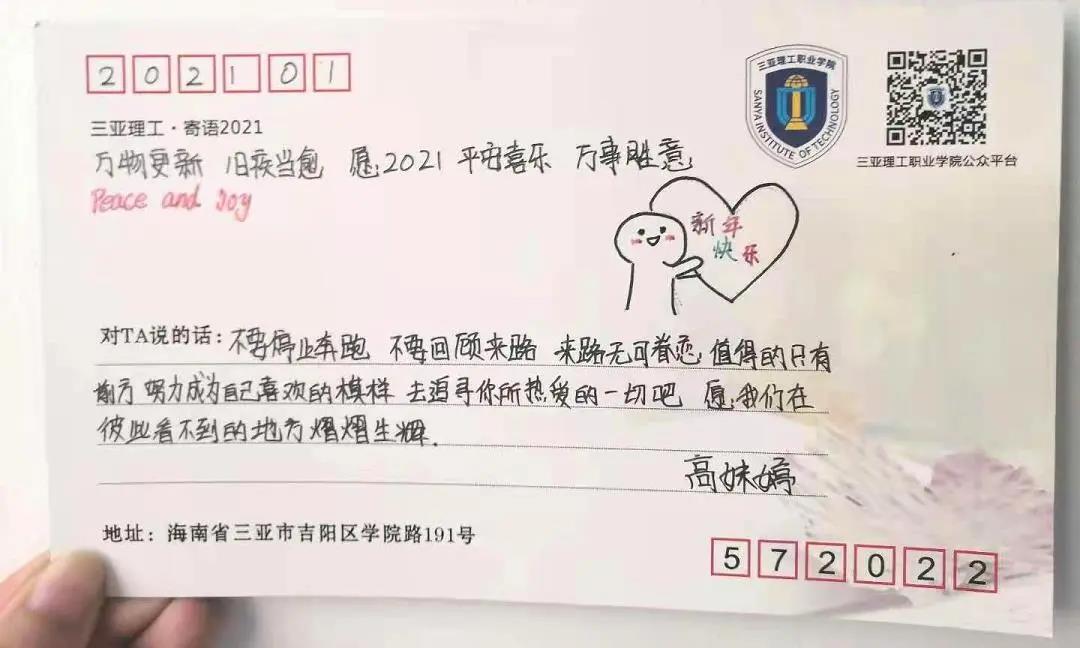 202101
三亚理工职业学院
SANYA INSTITUTE OF TECHNOLOGY
三亚理工职业学院公众平台
三亚理工·寄语2021
万物更新 旧疾当愈 愿2021 平安喜乐 万事胜意
Peace and Joy
新年
快乐
对TA说的话：不要停止奔跑 不要回顾来路 来路无可眷恋 值得的只有
前方 努力成为自己喜欢的模样 去追寻你所热爱的一切吧 愿我们在
彼此看不到的地方熠熠生辉.
高妹婷
地址：海南省三亚市吉阳区学院路191号
572022